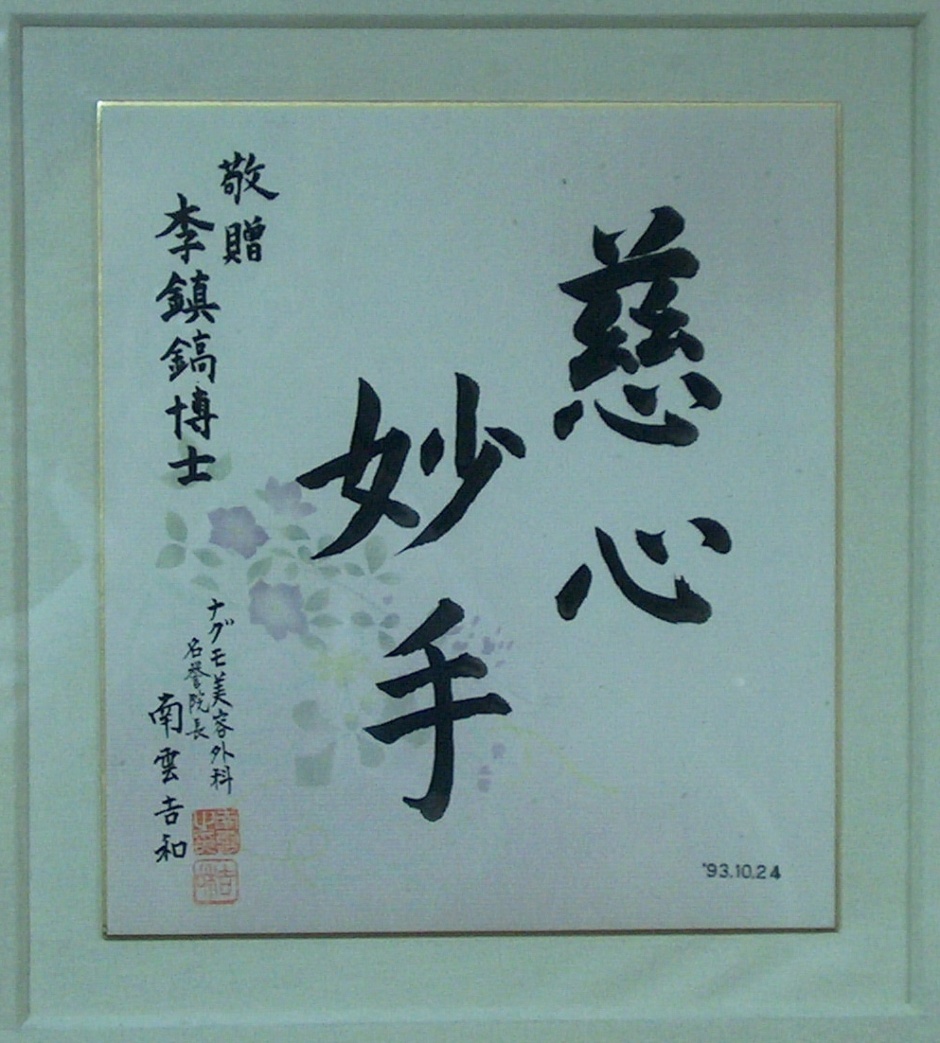 慈心
妙手
敬贈
李鎮鎬博士
ナグモ美容外科
名誉院長
南雲吉和
'93.10.24